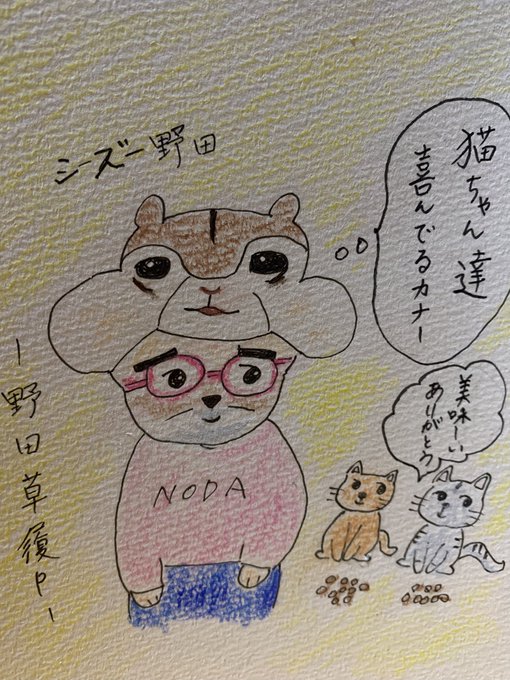 シーズー野田
猫ちゃん達
喜んでるカナー
美味しーい
ありがとう
NODA
ー野田草履Pー